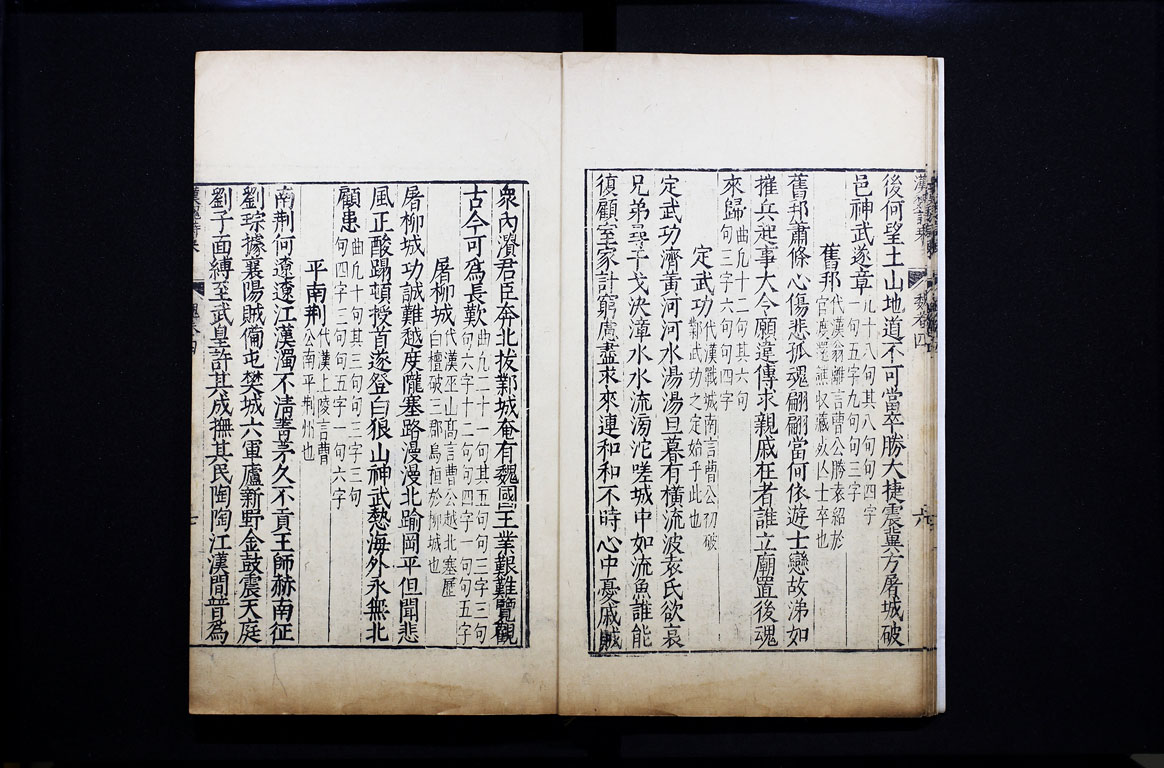 後何望土山地道不可當畢勝大捷震冀方屠城破
邑神武遂章
凡十八句其八句句四字
一句五字九句句三字
舊邦
代漢翁離言曹公勝袁紹於
官度還譙收藏死亡士卒也
舊邦蕭條心傷悲孤魂翩翩當何依遊士戀故涕如
摧兵起事大令願違傳求親戚在者誰立廟置後魂
來歸
曲凡十二句其六句
句三字六句句四字
定武功
代漢戰城南言曹公初破
鄴武功之定始乎此也
定武功濟黃河河水湯湯旦暮有橫流波袁氏欲衰
兄弟尋干戈決漳水水流滂沱嗟城中如流魚誰能
復顧室家計窮慮盡求來連和和不時心中憂戚賊
眾內潰君臣奔北拔鄴城奄有魏國王業艱難覽觀
古今可為長歎
曲凡二十一句其五句句三字三句
句六字十二句句四字一句句五字
屠柳城
代漢巫山高言曹公越北塞歷
白檀破三郡烏桓於柳城也
屠柳城功誠難越度隴塞路漫漫北踰岡平但聞悲
風正酸蹋頓授首遂登白狼山神武慹海外永無北
顧患
曲凡十句其三句句三字三句
句四字三句句五字一句六字
平南荆
代漢上陵言曹
公南平荆州也
南荆何遼遼江漢濁不清菁茅久不貢王師赫南征
劉琮據襄陽賊備屯樊城六軍廬新野金鼓震天庭
劉子面縛至武皇許其成撫其民陶陶江漢間普為
魏卷四
六
七